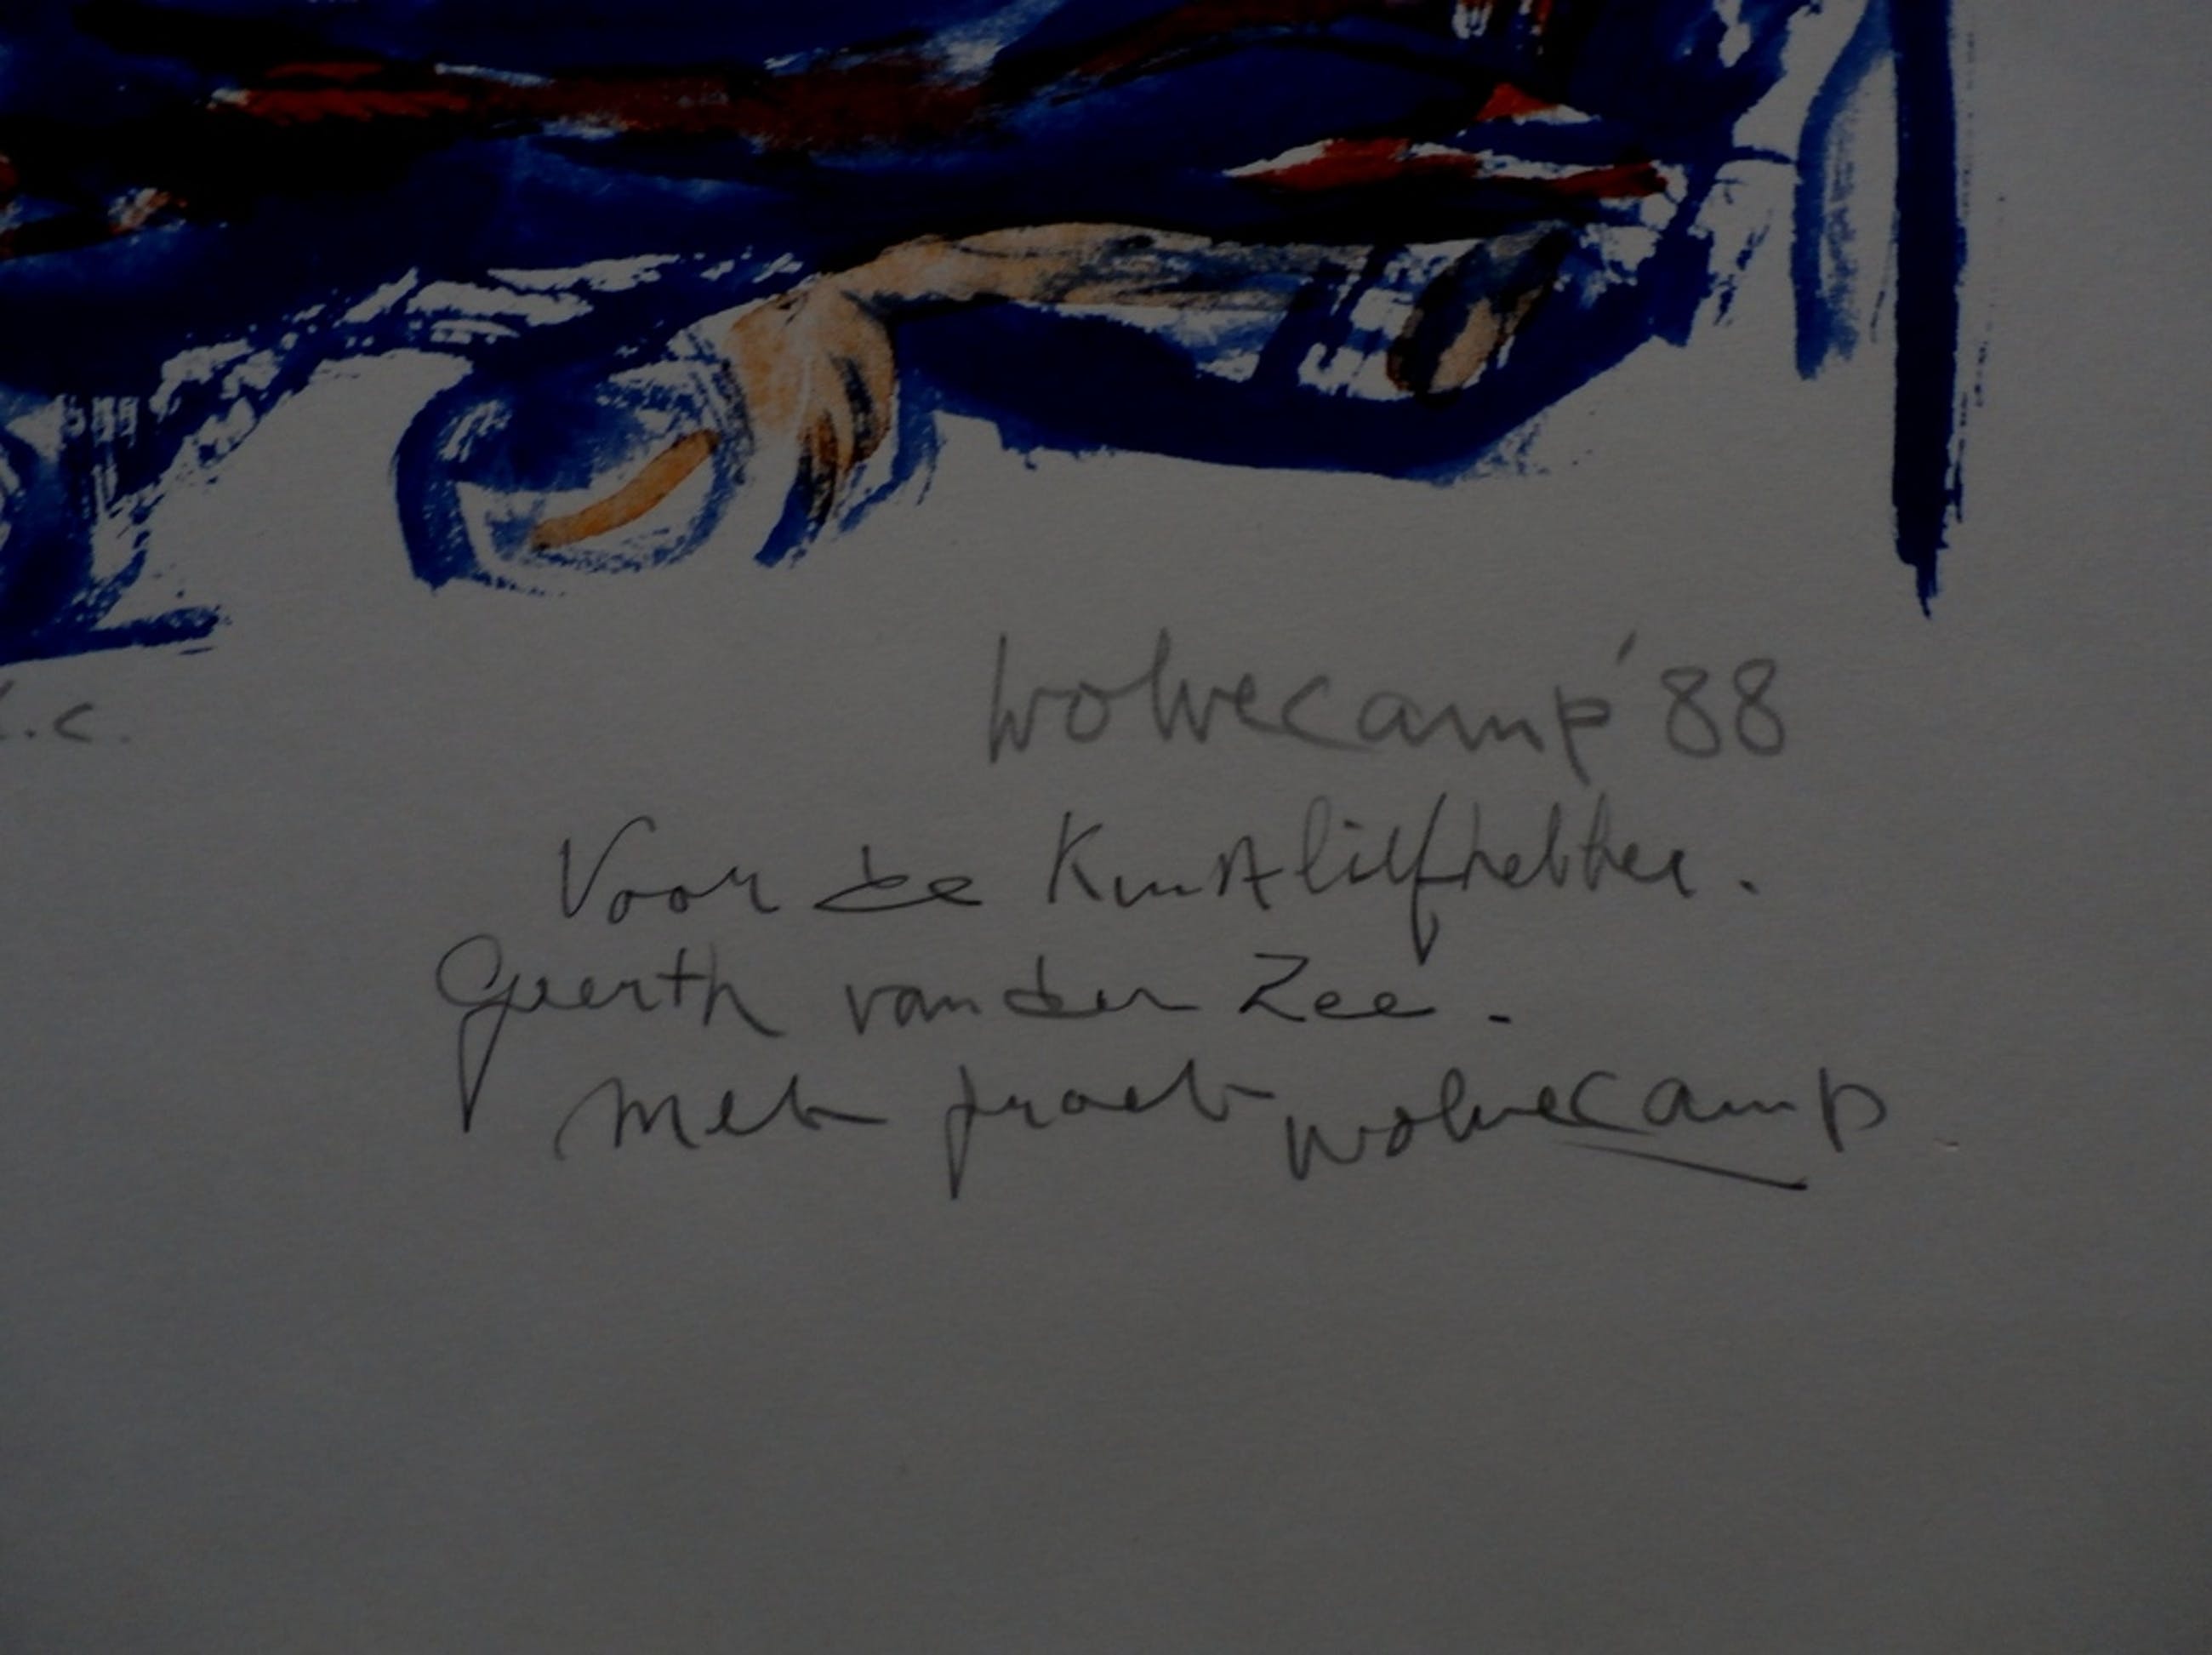 .c.
Wolvecamp '88
Voor de Kunstliefhebber.
Geerth van der Zee.
Met groet Wolvecamp